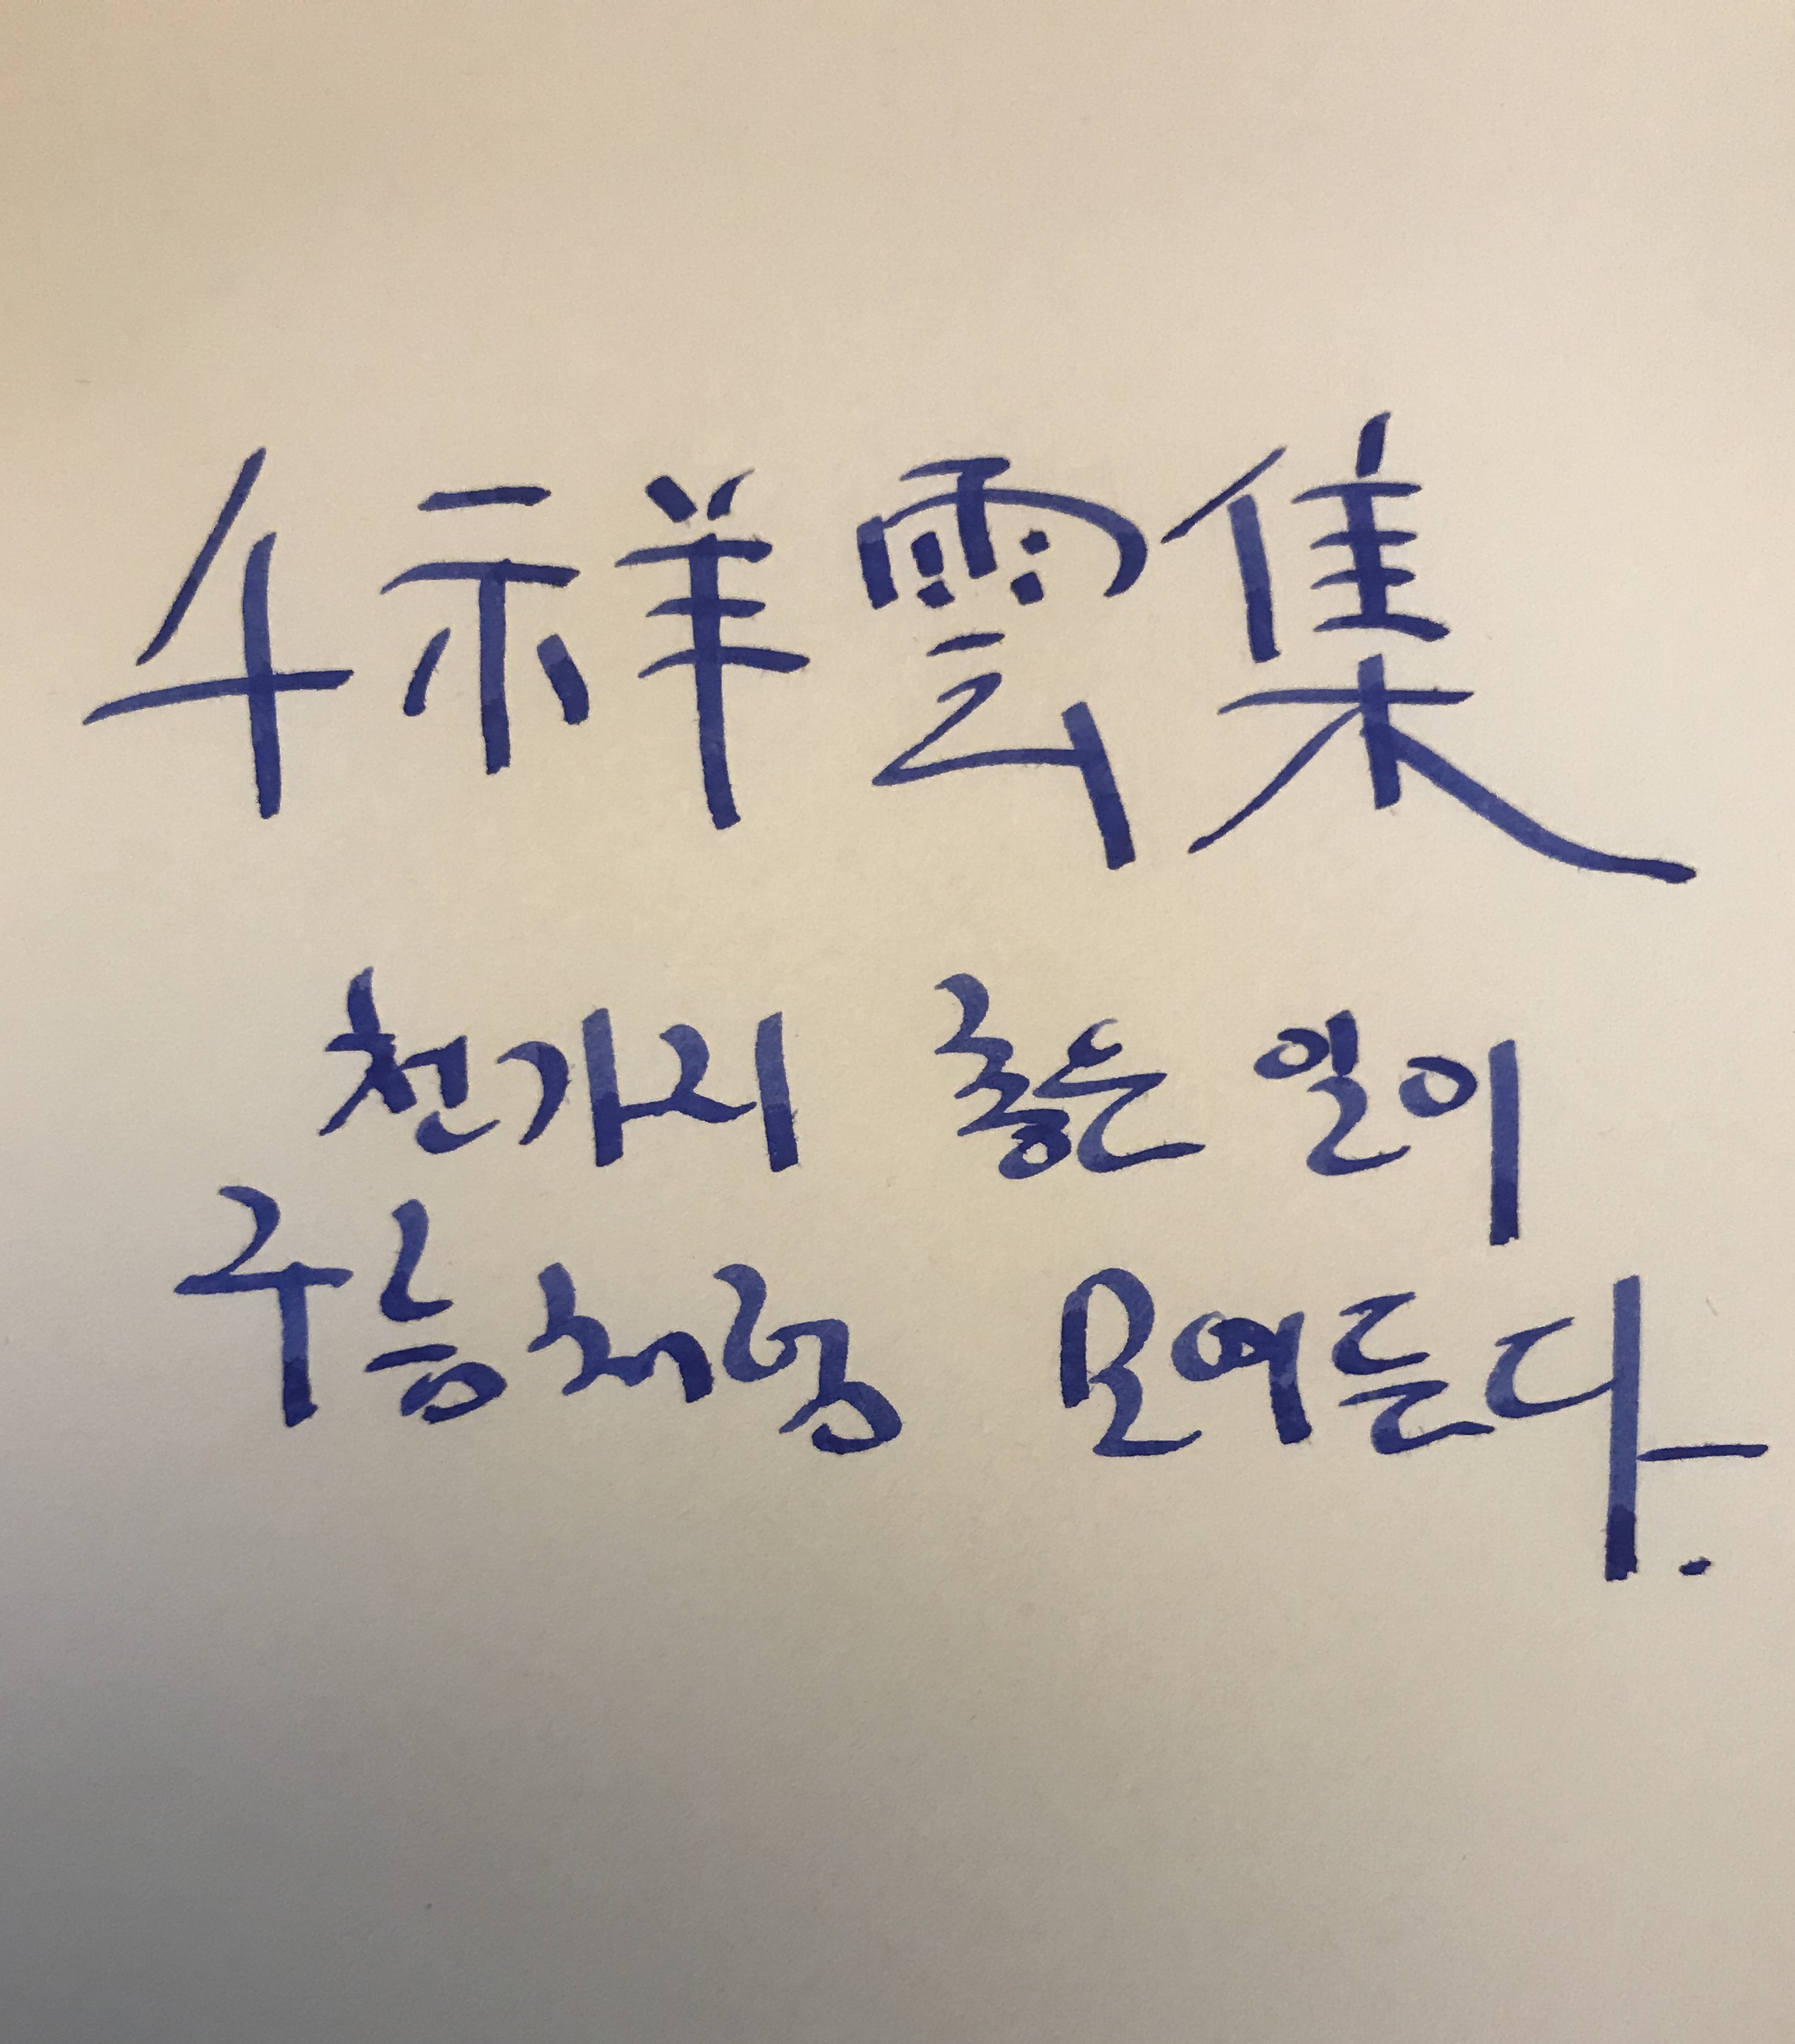 千祥雲集
천가지 좋은 일이
구름처럼 모여든다.